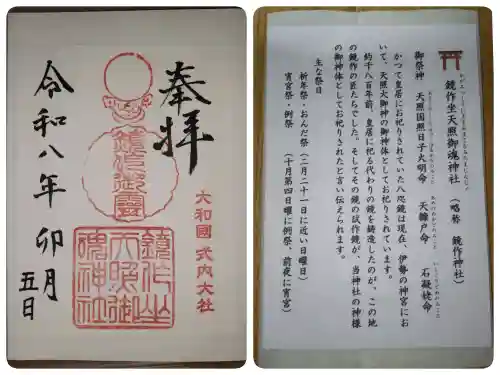 奉拝
大和國 式内大社
鏡作坐
天照御
魂神社
令和八年 卯月
五日
鏡作坐天照御魂神社 (略称 鏡作神社)
御祭神 天照国照日子火明命 天糠戸命 石凝姥命
かつて皇居にお祀りされていた八咫鏡は現在、伊勢の神宮にお
いて、天照大御神の御神体としてお祀りされています。
約千八百年前、皇居に祀る代わりの鏡を鋳造したのが、この地
の鏡作の匠たちでした。そしてその鏡の試作鏡が、当神社の神様
の御神体としてお祀りされたと言い伝えられます。
主な祭日
祈年祭・おんだ祭 (二月二十一に近い日曜日)
宵宮祭・例祭 (十月第四日曜に例祭、前夜に宵宮)